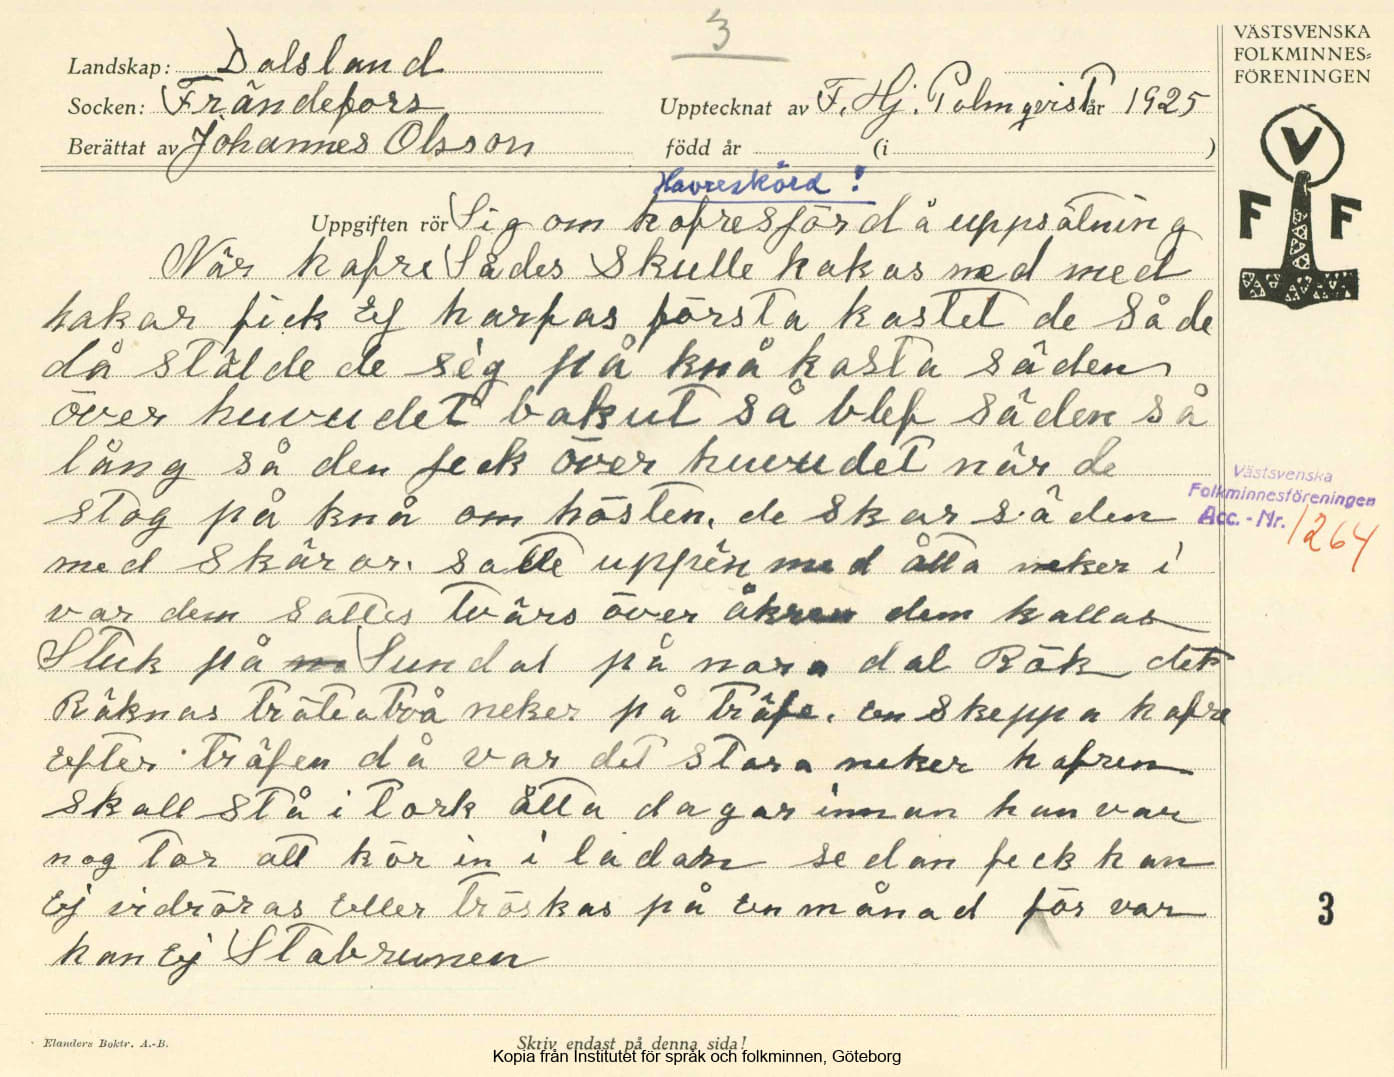 3
Landskap: Dalsland
Socken: Frändefors
Upptecknat av F. Hj. Palmqvist år 1925
Berättat av Johannes Olsson
född år (i )
Havreskörd!
Uppgiften rör Sig om hafresförd å uppsätning
När hafre Sådes Skulle hakas med med
hakar fick Ej harfas första kastet de Såde
då stälde de sig på knä kasta säden
över huvudet bakut så blef säden så
lång så den feck över huvudet när de
stog på knä om hösten. de skar säden
med skäror. satte uppen med åtta neker i
var dem sattes tvärs över åkren dem kallas
Stuk på Sundal på nara dal Rök det
Räknas trätiotvå neker på träfe. en skeppa hafre
efter träfen då var det stora neker hafren
skall stå i tork åtta dagar innan han var
nog tor att kör in i ladan sedan feck han
Ej vidröras eller tröskas på en månad för var
han Ej Stabrunen
VÄSTSVENSKA
FOLKMINNES-
FÖRENINGEN
V
F F
Västsvenska
Folkminnesföreningen
Acc.-Nr. 1264
3
Elanders Boktr. A.-B.
Skriv endast på denna sida!
Kopia från Institutet för språk och folkminnen, Göteborg